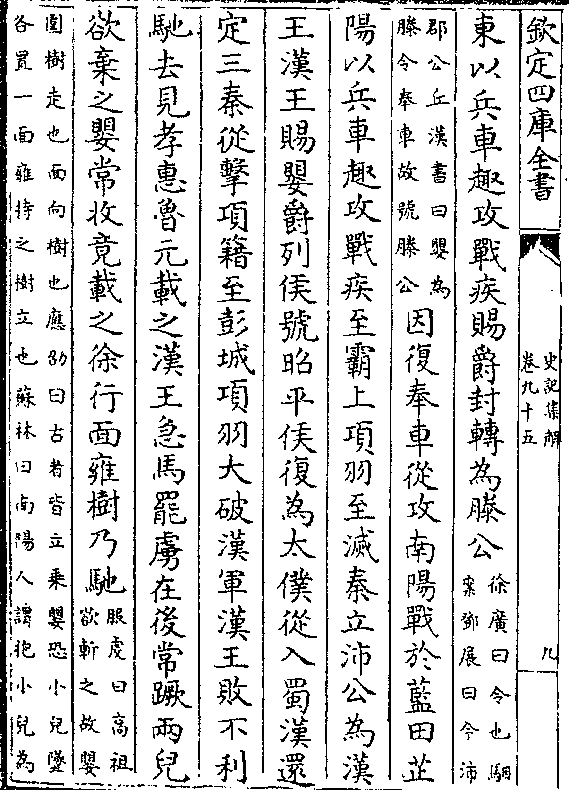 欽定四庫全書
史記集解
卷九十五
九
東以兵車趣攻戰疾賜爵封轉為滕公
徐廣曰令也駰
案鄧展曰今沛
郡公丘漢書曰嬰為
滕令奉車故號滕公
因復奉車從攻南陽戰於藍田芷
陽以兵車趣攻戰疾至霸上項羽至滅秦立沛公為漢
王漢王賜嬰爵列侯號昭平侯復為太僕從入蜀漢還
定三秦從擊項籍至彭城項羽大破漢軍漢王敗不利
馳去見孝惠魯元載之漢王急馬罷虜在後常蹶兩兒
欲棄之嬰常收竟載之徐行面雍樹乃馳
服虔曰高祖
欲斬之故嬰
圍樹走也面向樹也應劭曰古者皆立乘嬰恐小兒墜
各置一面雍持之樹立也蘇林曰南陽人謂抱小兒為